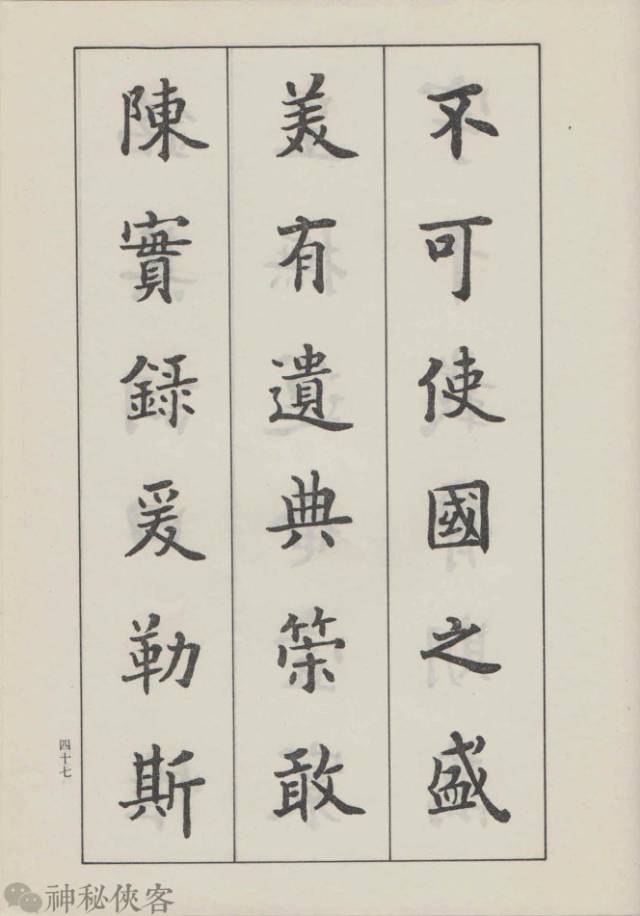 不可使國之盛
美有遺典策敢
陳實録爰勒斯
四十七
神秘俠客